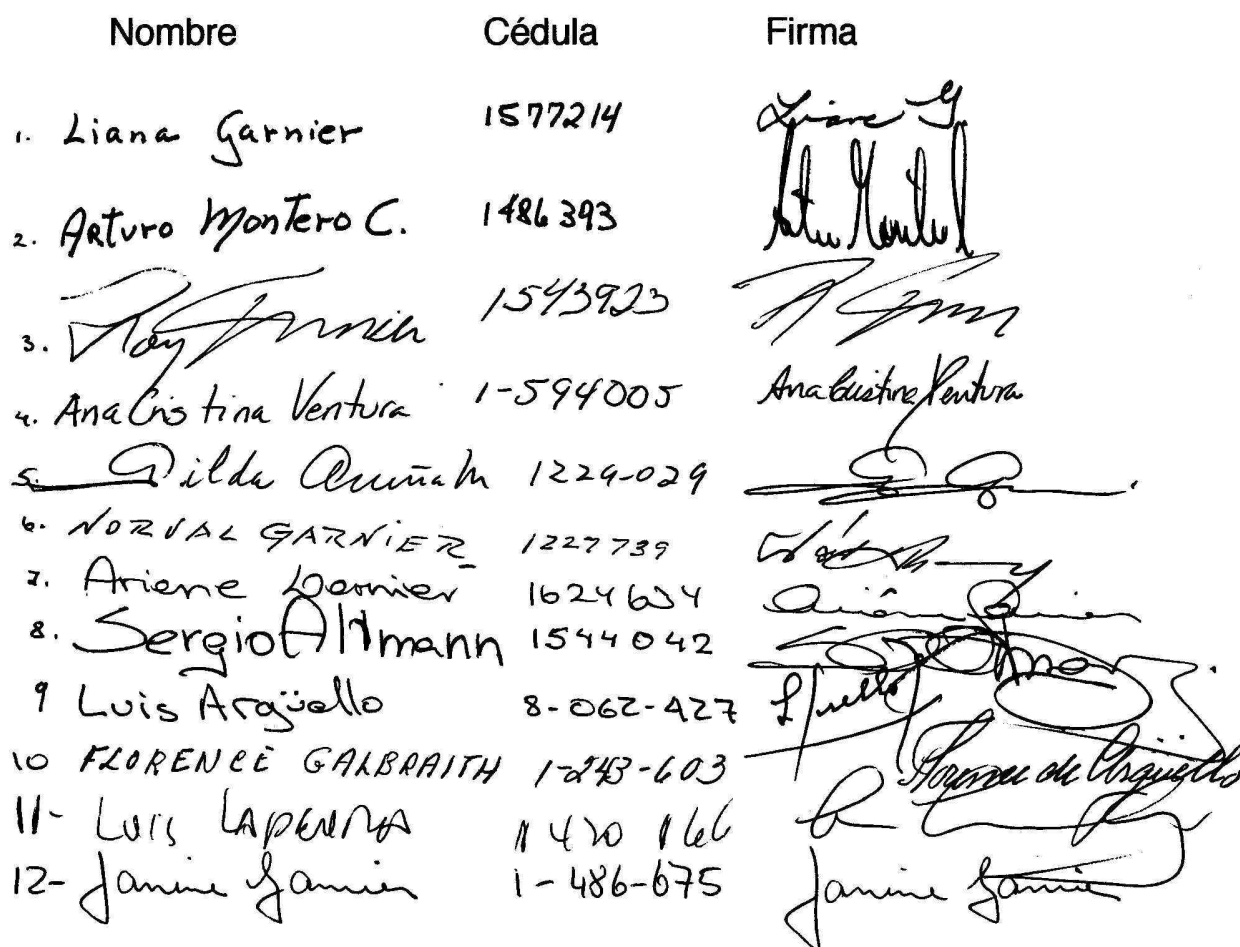 Nombre Cédula Firma
1. Liana Garnier 1577214 Liana G
2. Arturo Montero C. 1486393 Arturo Montero
3. Roy Garnier 1543923
4. Ana Cristina Ventura 1-594005 Ana Cristina Ventura
5. Gilda Acuña M 1229-029
6. NORVAL GARNIER 1227739
7. Ariane Garnier 1624634
8. Sergio Altmann 1544042
9 Luis Argüello 8-062-427
10 FLORENCE GALBRAITH 1-243-603 Florence de Argüello
11- Luis 1 420 166
12- Janine Garnier 1-486-675 Janine Garnier